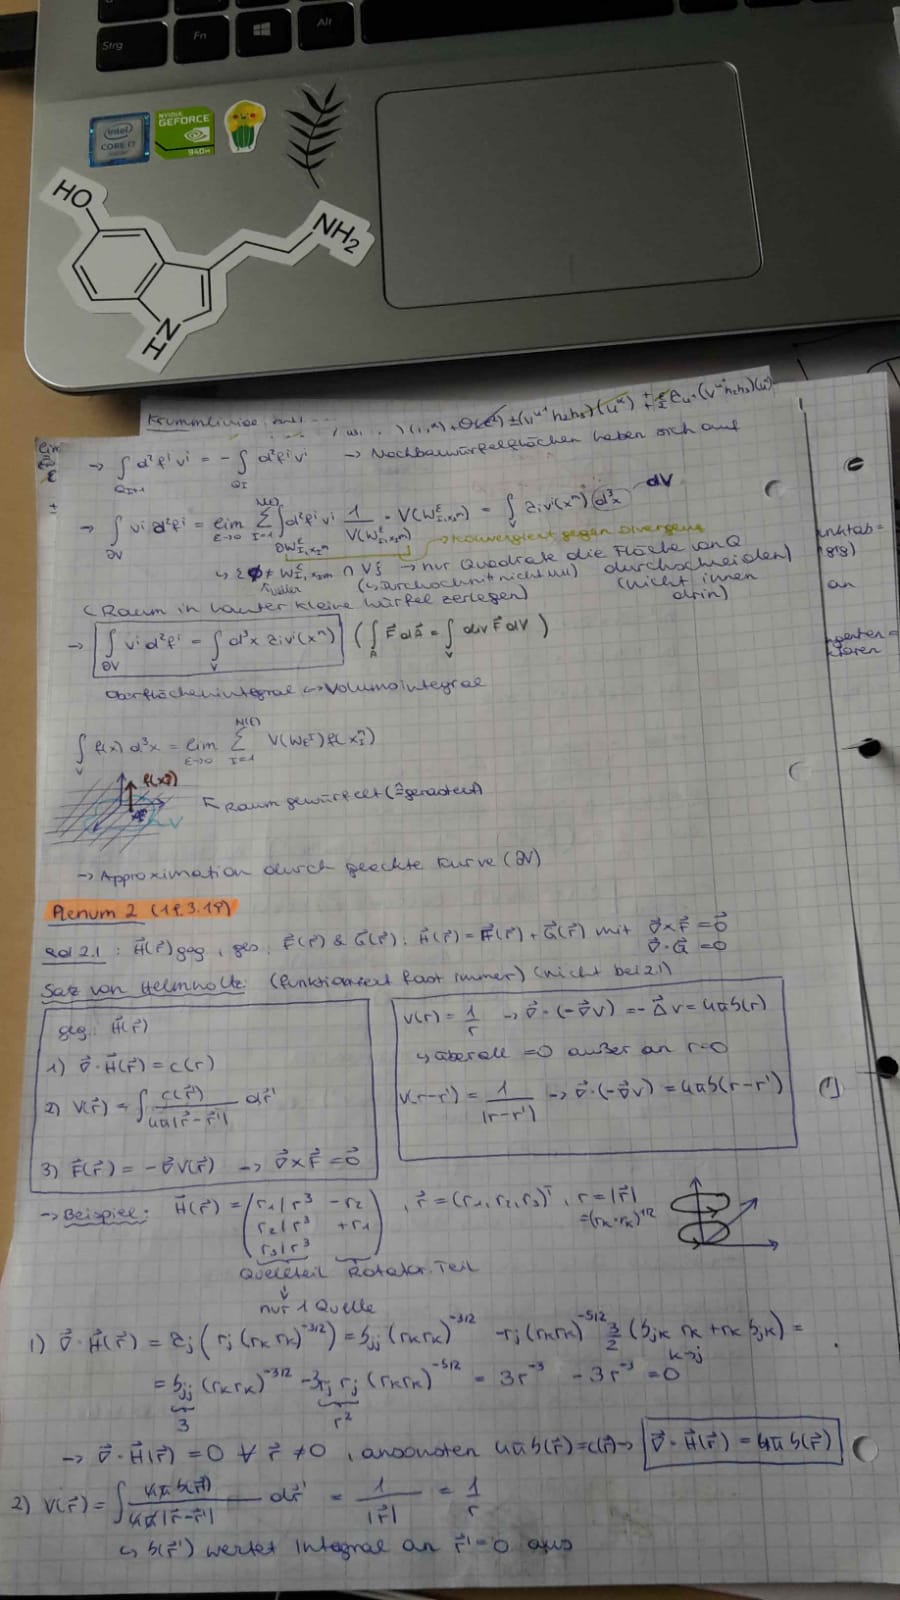 Strg
Fn
Alt
intel
CORE i7
NVIDIA
GEFORCE
940M
HO
NH₂
HN
→ ∫ d²fⁱ vⁱ = - ∫ d²fⁱ vⁱ → Nachbarwürfelflächen heben sich auf
→ ∫_∂V vⁱ d²fⁱ = lim_{ε→0} Σ_{I=1}^{N(ε)} ∫ d²fⁱ vⁱ 1/V(W) · V(W) = ∫_V ∂ᵢvⁱ(xⁿ) d³x dV
→ konvergiert gegen Divergenz
→ nur Quadrate die Fläche von Q
(↳ Durchschnitt nicht null) durchschneiden)
(nicht innen
drin)
(Raum in lauter kleine Würfel zerlegen)
→ ∫_∂V vⁱ d²fⁱ = ∫_V d³x ∂ᵢvⁱ(xⁿ) ( ∫_A F⃗ dA⃗ = ∫_V div F⃗ dV )
Oberflächenintegral ↔ Volumsintegral
∫_V f(x) d³x = lim_{ε→0} Σ_{I=1}^{N(ε)} V(W_ε^I) f(x_I^n)
Raum gewürfelt (≙ gerastert)
→ Approximation durch geeckte Kurve (∂V)
Plenum 2 (19.3.19)
Ad 2.1: H⃗(r⃗) geg., ges. F⃗(r⃗) & G⃗(r⃗): H⃗(r⃗) = F⃗(r⃗) + G⃗(r⃗) mit ∇⃗×F⃗ = 0⃗
∇⃗·G⃗ = 0
Satz von Helmholtz: (funktioniert fast immer) (nicht bei 2.1)
geg.: H⃗(r⃗)
1) ∇⃗·H⃗(r⃗) = c(r)
2) V(r⃗) = ∫ c(r⃗')/(4π|r⃗-r⃗'|) dr⃗'
3) F⃗(r⃗) = -∇⃗V(r⃗) → ∇⃗×F⃗ = 0⃗
V(r) = 1/r → ∇⃗·(-∇⃗V) = -Δ⃗V = 4πδ(r)
↳ überall = 0 außer an r=0
V(r-r') = 1/|r-r'| → ∇⃗·(-∇⃗V) = 4πδ(r-r')
→ Beispiel: H⃗(r⃗) = (r₁/r³ - r₂, r₂/r³ + r₁, r₃/r³), r⃗ = (r₁, r₂, r₃)ᵀ, r = |r⃗|
= (r_k·r_k)^{1/2}
Quellteil Rotator. Teil
nur 1 Quelle
1) ∇⃗·H⃗(r⃗) = ∂_j (r_j (r_k r_k)^{-3/2}) = δ_jj (r_k r_k)^{-3/2} - r_j (r_k r_k)^{-5/2} 3/2 (δ_jk r_k + r_k δ_jk) =
k→j
= δ_jj (r_k r_k)^{-3/2} - 3 r_j r_j (r_k r_k)^{-5/2} = 3r⁻³ - 3r⁻³ = 0
3 r²
→ ∇⃗·H⃗(r⃗) = 0 ∀ r⃗ ≠ 0, ansonsten 4πδ(r⃗) = c(r⃗) → ∇⃗·H⃗(r⃗) = 4πδ(r⃗)
2) V(r⃗) = ∫ 4πδ(r⃗')/(4π|r⃗-r⃗'|) dr⃗' = 1/|r⃗| = 1/r
↳ δ(r⃗') wertet Integral an r⃗'=0 aus